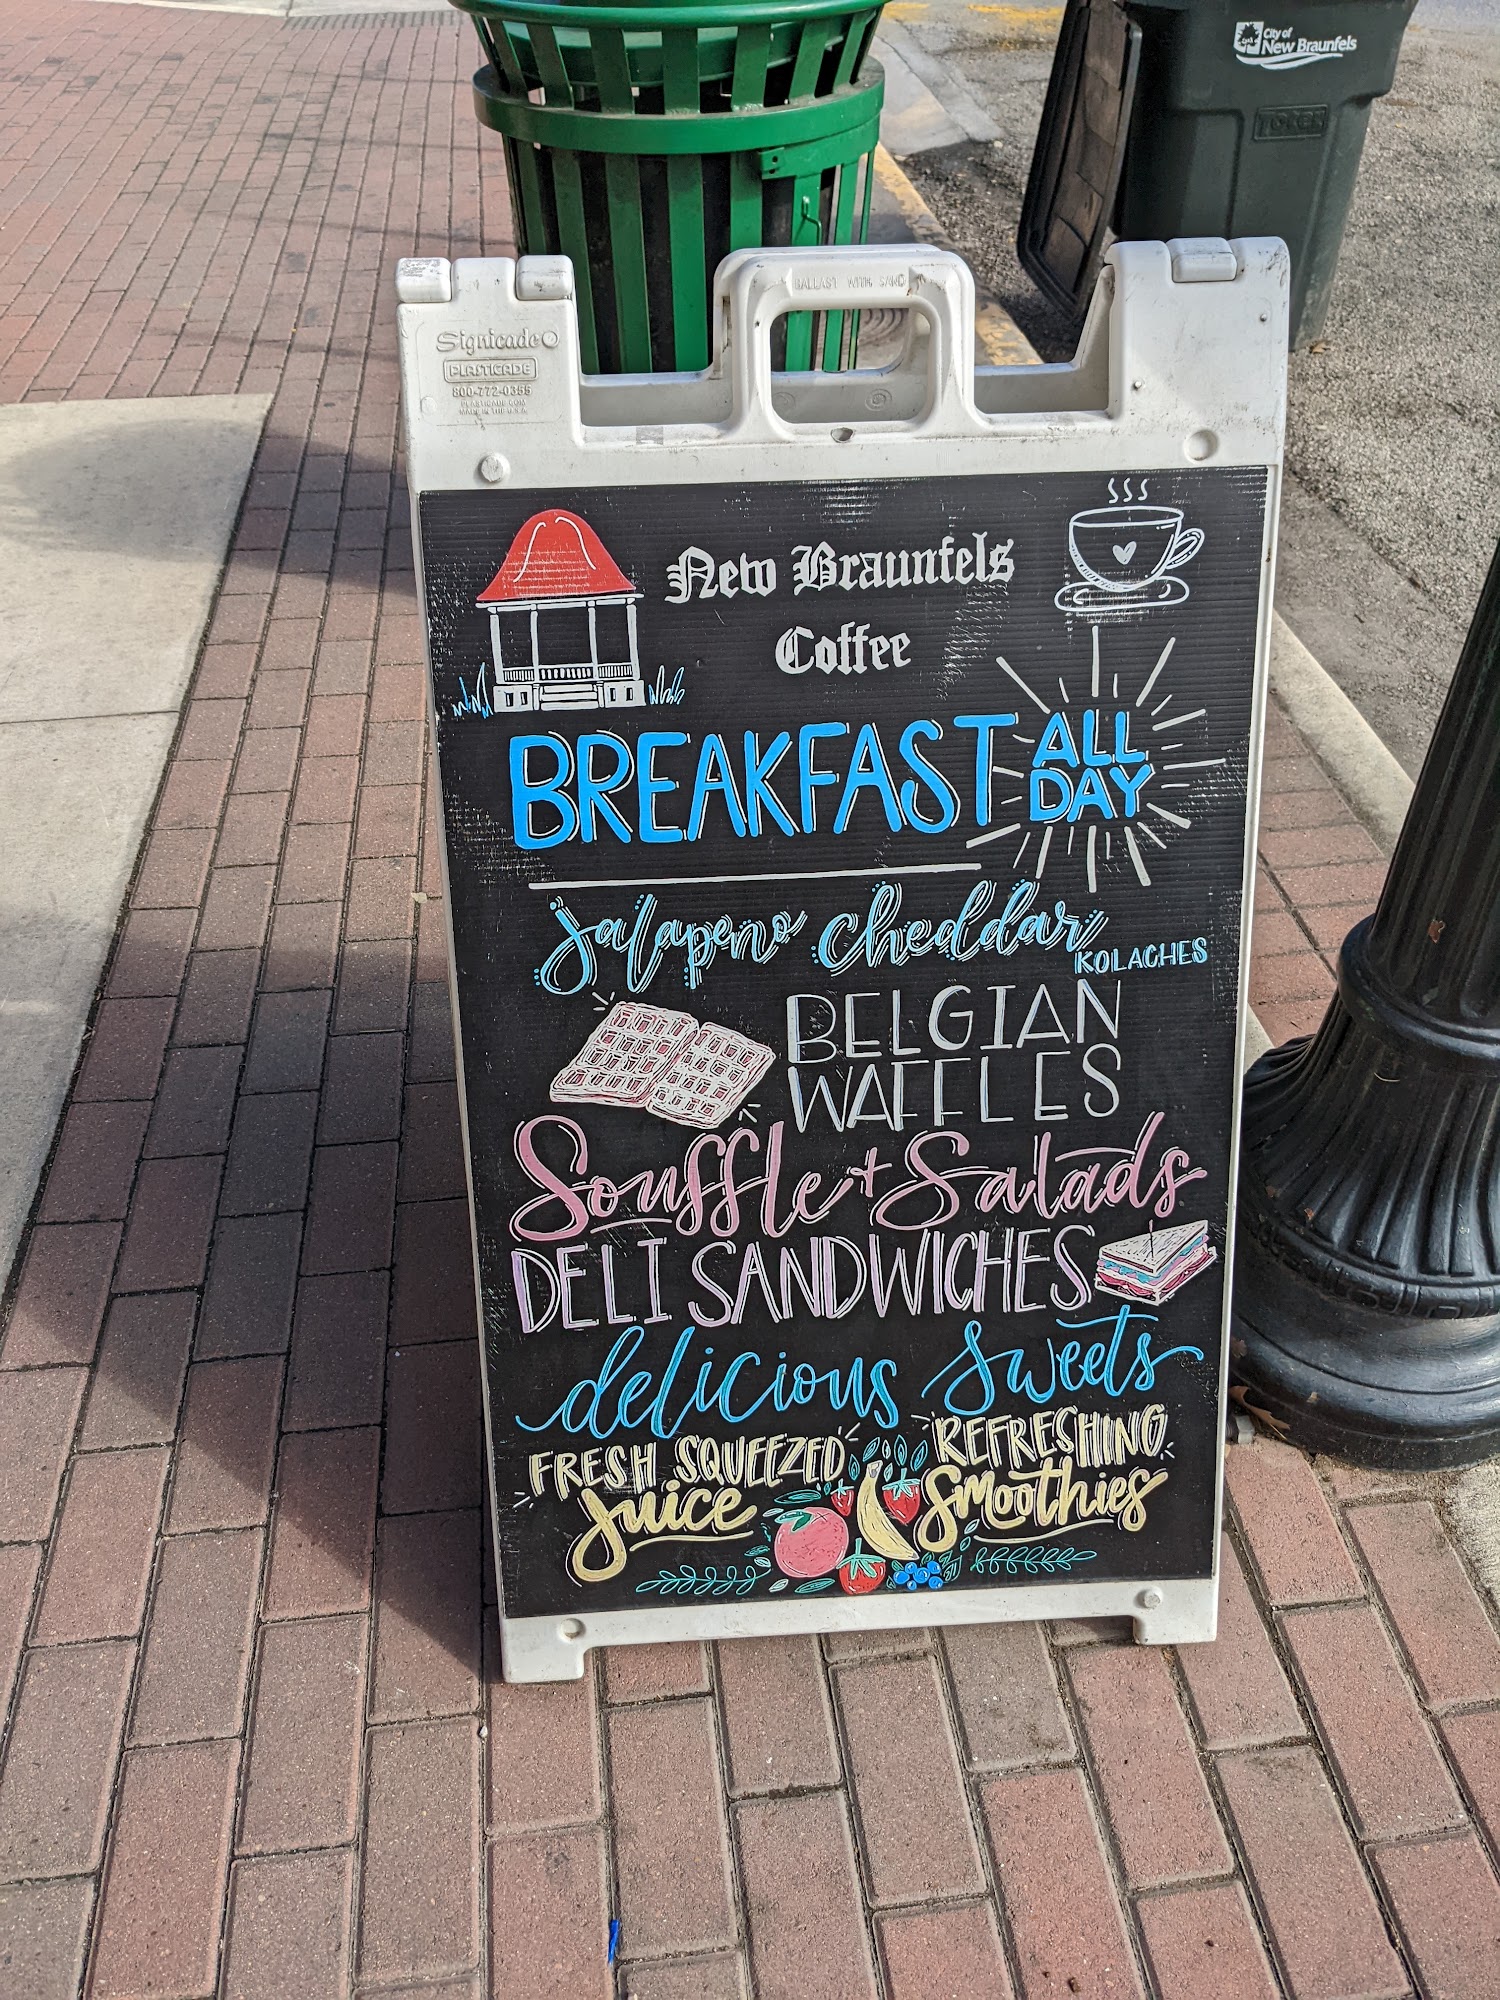 City of
New Braunfels
TOTER
BALLAST WITH SAND
Signicade
PLASTICADE
800-772-0355
PLASTICADE.COM
MADE IN THE U.S.A.
New Braunfels
Coffee
BREAKFAST ALL DAY
Jalapeno Cheddar KOLACHES
BELGIAN
WAFFLES
Souffle + Salads
DELI SANDWICHES
delicious sweets
FRESH SQUEEZED
Juice
REFRESHING
Smoothies